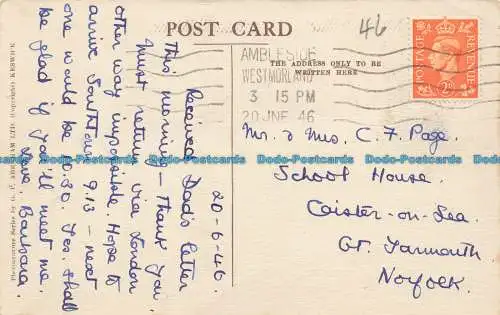 POST CARD
46
THE ADDRESS ONLY TO BE
WRITTEN HERE
AMBLESIDE
WESTMORLAND
3 15 PM
20 JNE 46
POSTAGE
REVENUE
20-6-46.
Received Dad's letter
this morning - Thank you.
Must return via London
other way impossible. Hope to
arrive Southtown 9.13 - next
one would be 10.30. Yes, shall
be glad if you'll meet me.
Love, Barbara.
Mr & Mrs. C. F. Page.
School House.
Caister-on-Sea.
Gt. Yarmouth
Norfolk.
Photogravure Series by G. P. ABRAHAM LTD. (Copyright) KESWICK
Dodo-Postcards Dodo-Postcards Dodo-Postcards Dodo-Postcards